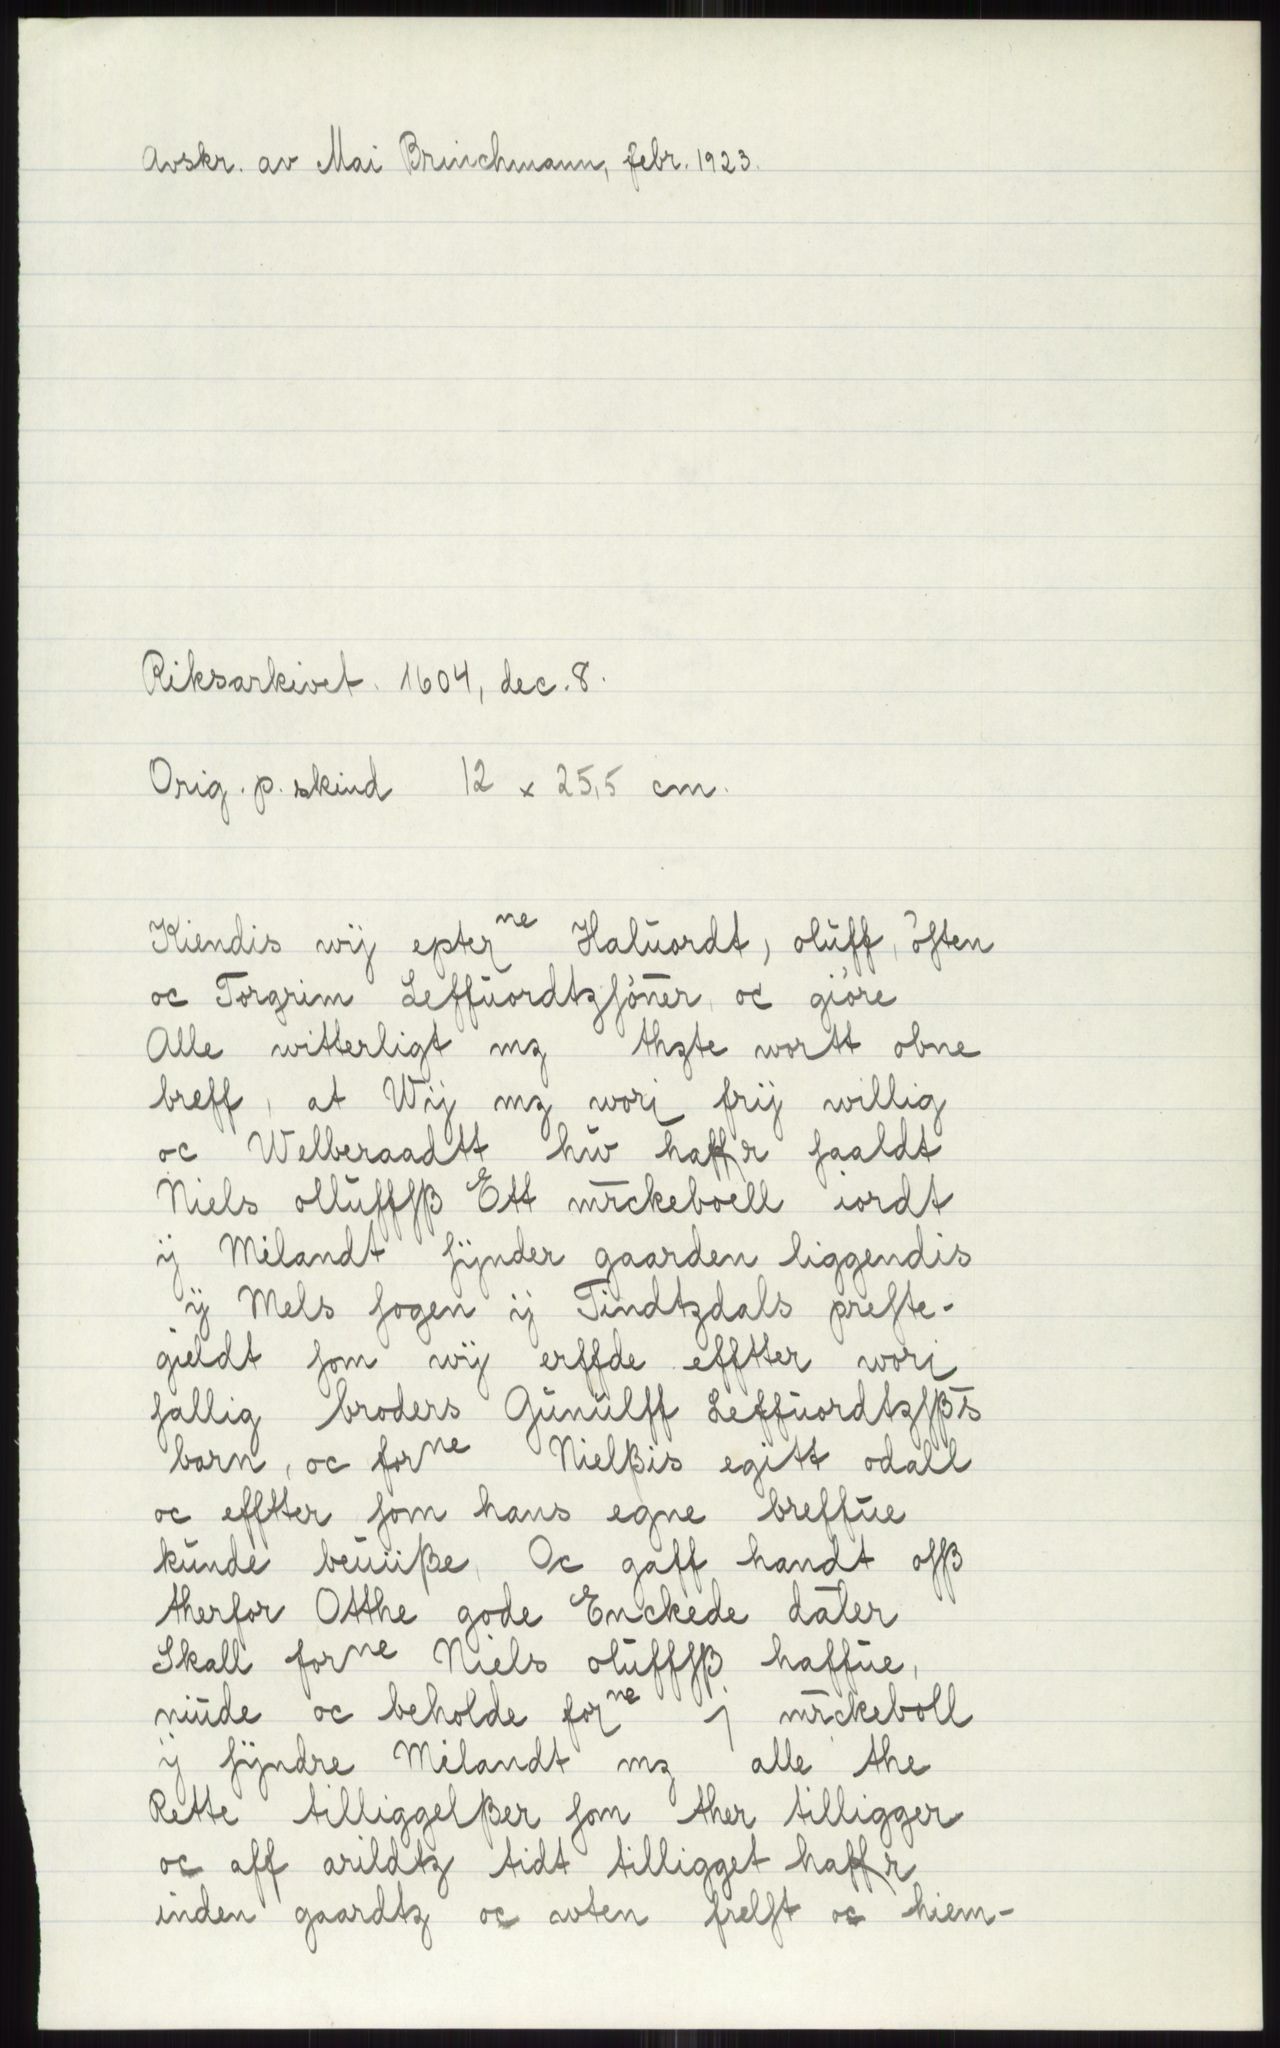 Avskr. av Mai Brinchmann, febr. 1923.
Riksarkivet. 1604, dec. 8.
Orig. p. skind 12 x 25,5 cm.
Kiendis wij epterne Haluordt, oluff, østen
oc Torgrim Leffuordtzsøner oc giøre
Alle witterligt mz thzte wortt obne
breff, at Wij mz worj frij willig
oc Welberaadtt huw haffr saaldt
Niels olluffsß Ett mrckeboell iordt
ij Milandt sijnder gaarden liggendis
ij Mels sogen ij Tindtzdals preste-
gieldt som wij erffde efftter worj
sallig broders Gunulff Leffuordtzsßis
barn, oc forne Nielßis egitt odall
oc efftter som hans egne breffue
kunde beuiiße, Oc gaff handt osß
therfor Otthe gode Enckede daler
Skall forne Niels oluffsß haffue,
niude oc beholde forne j mrckeboll
ij sijndre Milandt mz alle the
Rette tilliggelßer som ther tilligger
oc aff arildtz tidt tilligget haffr
inden gaardtz oc wten frelst oc hiem-